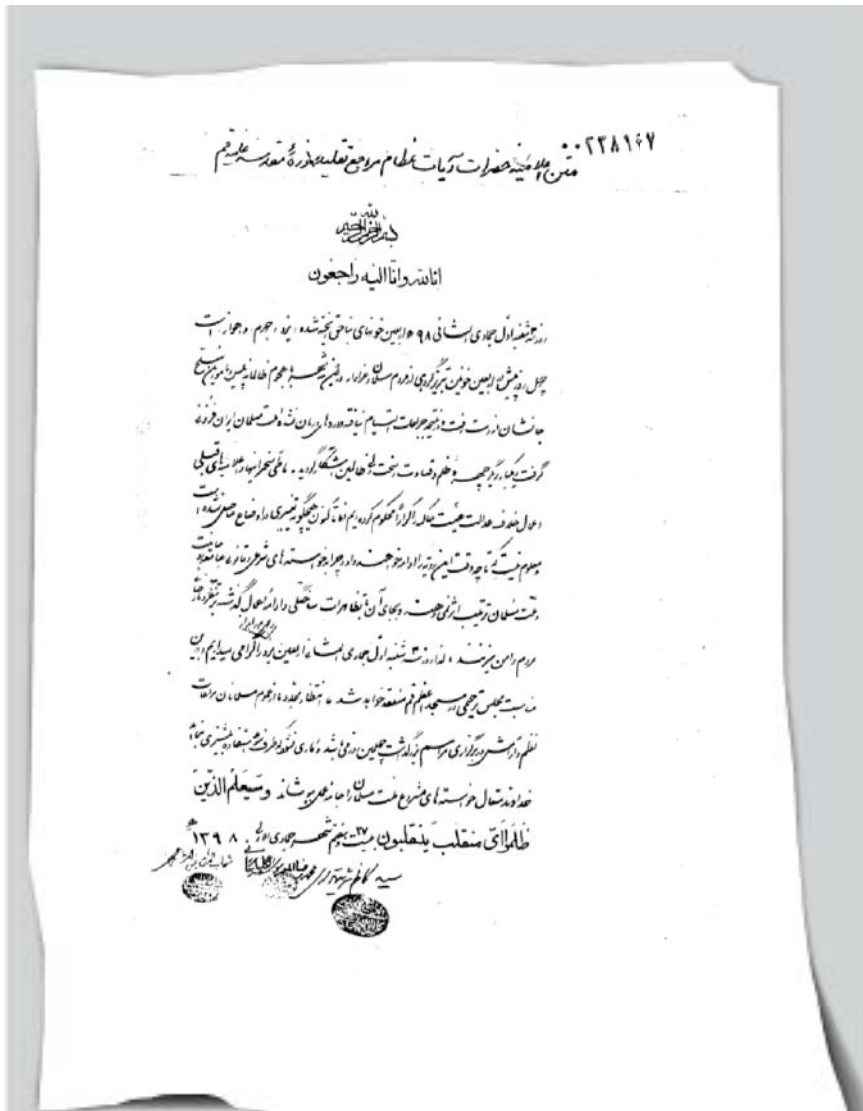 ۰۰۲۲۸۱۶۷
متن اعلامیه حضرات آیات عظام مراجع تقلید حوزه مقدسه علمیه قم
بسم الله الرحمن الرحیم
انا لله و انا الیه راجعون
روز شنبه اول جمادی الثانی ۹۸ اربعین خونهای ناحق ریخته شده یزد، جهرم و اهواز است
چهل روز پیش در اربعین خونین تبریز گروهی از مردم مسلمان و عزادار در این شهرها با هجوم ظالمانه پلیس و مأمورین مسلح
جانشان از دست رفت و در نتیجه جراحات التیام نیافته و دردهای درمان نشده ملت مسلمان ایران فزونی
گرفت و یکبار دیگر چهره ظلم و قساوت ظالمین آشکار گردید. ما طی سخنرانیها و اعلامیه‌های قبلی
اعمال خلاف عدالت هیئت حاکمه را کراراً محکوم کرده‌ایم اما تاکنون هیچگونه تغییری در اوضاع حاصل نشده است
و معلوم نیست که تا چه وقت این رویه را ادامه خواهند داد و چرا به خواسته‌های شرعی و قانونی جامعه روحانیت
و ملت مسلمان ترتیب اثر نمیدهند و بجای آن با تظاهرات ساختگی و ادامه اعمال گذشته
مردم دامن میزنند، لذا روز شنبه اول جمادی الثانی اربعین را گرامی میداریم و به این
مناسبت مجلس ترحیمی در مسجد اعظم قم منعقد خواهد شد. انتظار میرود عموم مسلمانان مراعات
نظم و آرامش در برگزاری مراسم بزرگداشت چهلمین روز
خداوند متعال خواسته‌های مشروع ملت مسلمان را جامه عمل بپوشاند و سیعلم الذین
ظلموا ای منقلب ینقلبون بیست و هفتم شهر جمادی الاولی ۱۳۹۸
سید کاظم شریعتمداری محمدرضا الموسوی الگلپایگانی شهاب الدین المرعشی النجفی